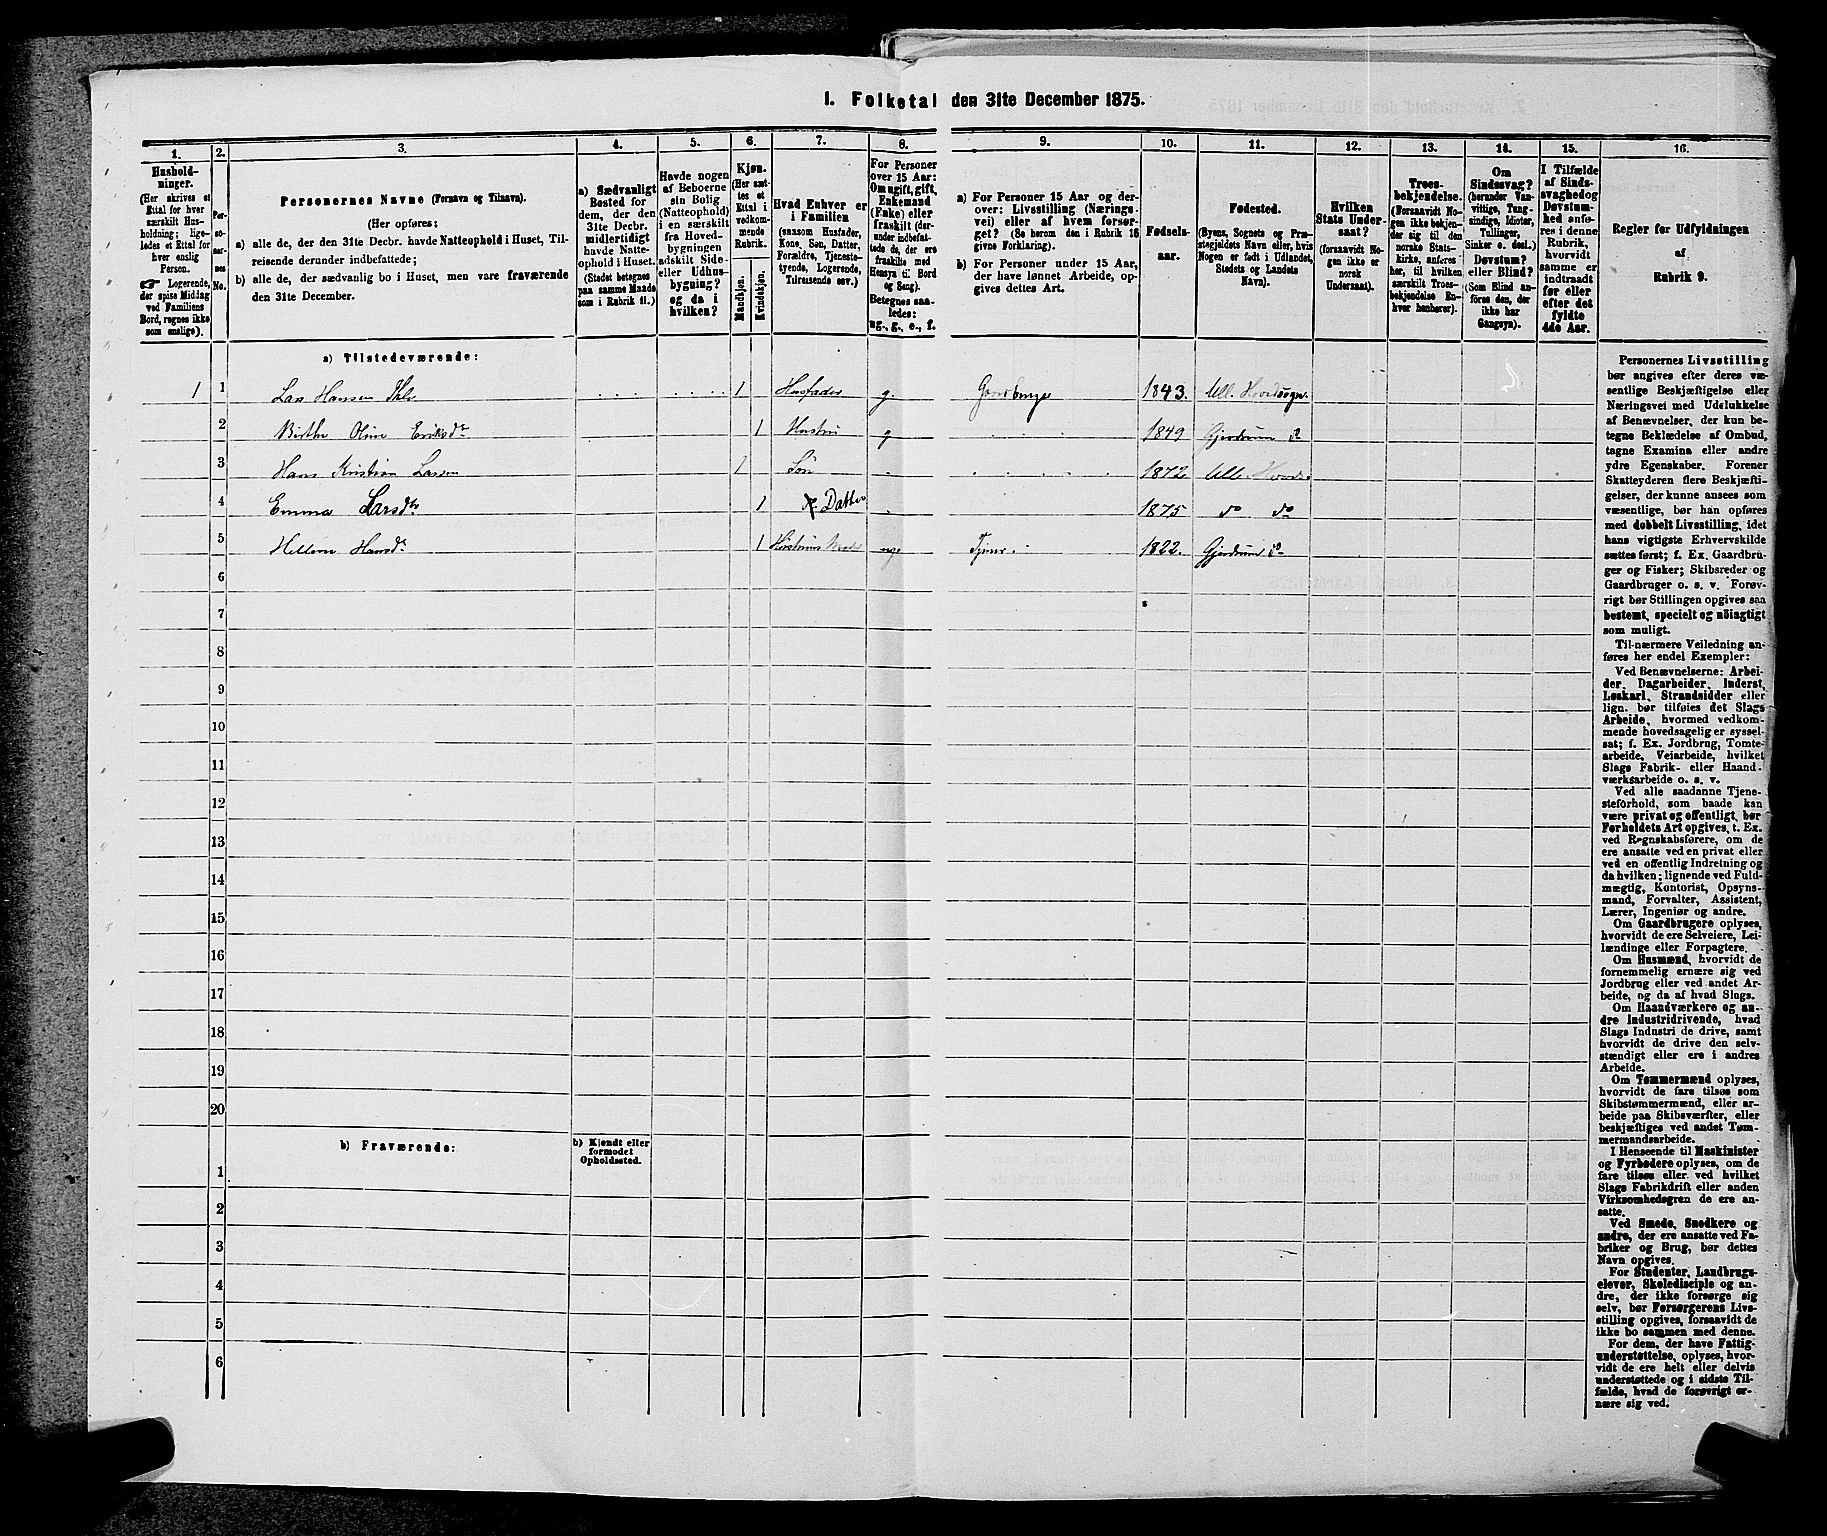 1. Folketal den 31te December 1875.
1.
Hushold-
ninger.
(Her skrives et
Ettal for hver
særskilt Hus-
holdning; lige-
ledes et Ettal for
hver enslig
Person.
☛ Logerende,
der spise Middag
ved Familiens
Bord, regnes ikke
som enslige).
2.
Per-
so-
ner-
nes
No.
3.
Personernes Navne (Fornavn og Tilnavn).
(Her opføres:
a) alle de, der den 31te Decbr. havde Natteophold i Huset, Til-
reisende derunder indbefattede;
b) alle de, der sædvanlig bo i Huset, men vare fraværende
den 31te December.
4.
a) Sædvanligt
Bosted for
dem, der den
31te Decbr.
midlertidigt
havde Natte-
ophold i Huset.
(Stedet betegnes
paa samme Maade
som i Rubrik 11.)
5.
Havde nogen
af Beboerne
sin Bolig
(Natteophold)
i en særskilt
fra Hoved-
bygningen
adskilt Side-
eller Udhus-
bygning?
og da i
hvilken?
6.
Kjøn.
(Her sæt-
tes et
Ettal i
vedkom-
mende
Rubrik.
Mandkjøn.
Kvindekjøn.
7.
Hvad Enhver er
i Familien
(saasom Husfader,
Kone, Søn, Datter,
Forældre, Tjeneste-
tyende, Logerende,
Tilreisende osv.)
8.
For Personer
over 15 Aar:
Om ugift, gift,
Enkemand
(Enke) eller
fraskilt (der-
under indbefat-
tede de, der ere
fraskilte med
Hensyn til Bord
og Seng).
Betegnes saa-
ledes:
ug., g., e., f.
9.
a) For Personer 15 Aar og der-
over: Livsstilling (Nærings-
vei) eller af hvem forsør-
get? (Se herom den i Rubrik 16
givne Forklaring).
b) For Personer under 15 Aar,
der have lønnet Arbeide, op-
gives dettes Art.
10.
Fødsels-
aar.
11.
Fødested.
(Byens, Sognets og Præ-
stegjeldets Navn eller, hvis
Nogen er født i Udlandet,
Stedets og Landets
Navn).
12.
Hvilken
Stats Under-
saat?
(forsaavidt No-
gen ikke er
norsk
Undersaat).
13.
Troes-
bekjendelse.
(Forsaavidt No-
gen ikke bekjen-
der sig til den
norske Stats-
kirke, anføres
her, til hvilken
særskilt Troes-
bekjendelse En-
hver henhører).
14.
Om
Sindssvag?
(herunder Van-
vittige, Tung-
sindige, Idioter,
Tullinger,
Sinker o. desl.)
Døvstum?
eller Blind?
(Som Blind an-
føres den, der
ikke har
Gangsyn).
15.
I Tilfælde
af Sinds-
svaghed og
Døvstum-
hed anfø-
res i denne
Rubrik,
hvorvidt
samme er
indtraadt
før eller
efter det
fyldte
4de Aar.
16.
Regler for Udfyldningen
af
Rubrik 9.
a) Tilstedeværende:
1 1 Lars Hansen 1 Husfader g. Gaardbruger 1843. Ull. Hovedsogn
2 Birthe Oline Eriksdr 1 Hustru g 1849 Gjerdrum Do
3 Hans Kristian Larsen 1 Søn 1872 Ull. Hoveds.
4 Emma Larsdr 1 Datter 1875 do do
5 Hellene Hansdr 1 Hustrues Moder 1822. Gjerdrum Do
6
7
8
9
10
11
12
13
14
15
16
17
18
19
20
b) Fraværende:
b) Kjendt eller
formodet
Opholdssted.
1
2
3
4
5
6
Personernes Livsstilling
bør angives efter deres væ-
sentlige Beskjæftigelse eller
Næringsvei med Udelukkelse
af Benævnelser, der kun be-
tegne Beklædelse af Ombud,
tagne Examina eller andre
ydre Egenskaber. Forener
Skatteyderen flere Beskjæfti-
gelser, der kunne ansees som
væsentlige, bør han opføres
med dobbelt Livsstilling, idet
hans vigtigste Erhvervskilde
sættes først; f. Ex. Gaardbru-
ger og Fisker; Skibsreder og
Gaardbruger o. s. v. Forøv-
rigt bør Stillingen opgives saa
bestemt, specielt og nöiagtigt
som muligt.
Til nærmere Veiledning an-
føres her endel Exempler:
Ved Benævnelserne: Arbei-
der, Dagarbeider, Inderst,
Løskarl, Strandsidder eller
lign. bør tilføies det Slags
Arbeide, hvormed vedkom-
mende hovedsagelig er syssel-
sat; f. Ex. Jordbrug, Tomte-
arbeide, Veiarbeide, hvilket
Slags Fabrik- eller Haand-
værksarbeide o. s. v.
Ved alle saadanne Tjene-
steforhold, som baade kan
være privat og offentligt, bør
Forholdets Art opgives, t. Ex.
ved Regnskabsførere, om de
ere ansatte ved en privat eller
ved en offentlig Indretning og
da hvilken; lignende ved Fuld-
mægtig, Kontorist, Opsyns-
mand, Forvalter, Assistent,
Lærer, Ingeniør og andre.
Om Gaardbrugere oplyses,
hvorvidt de ere Selveiere, Lei-
lændinge eller Forpagtere.
Om Husmænd, hvorvidt de
fornemmelig ernære sig ved
Jordbrug eller ved andet Ar-
beide, og da af hvad Slags.
Om Haandværkere og an-
dre Industridrivende, hvad
Slags Industri de drive, samt
hvorvidt de drive den selv-
stændigt eller ere i andres
Arbeide.
Om Tømmermænd oplyses,
hvorvidt de fare tilsøs som
Skibstømmermænd, eller ar-
beide paa Skibsværfter, eller
beskjæftiges ved andet Tøm-
mermandsarbeide.
I Henseende til Maskinister
og Fyrbødere oplyses, om de
fare tilsøs eller ved hvilket
Slags Fabrikdrift eller anden
Virksomhedsgren de ere an-
satte.
Ved Smede, Snedkere og
andre, der ere ansatte ved Fa-
briker og Brug, bør dettes
Navn opgives.
For Studenter, Landbrugs-
elever, Skoledisciple og an-
dre, der ikke forsørge sig
selv, bør Forsørgerens Livs-
stilling opgives, forsaavidt de
ikke bo sammen med denne.
For dem, der have Fattig-
understøttelse, oplyses, hvor-
vidt de ere helt eller delvis
understøttede og i sidste Til-
fælde, hvad de forøvrigt er-
nære sig ved.